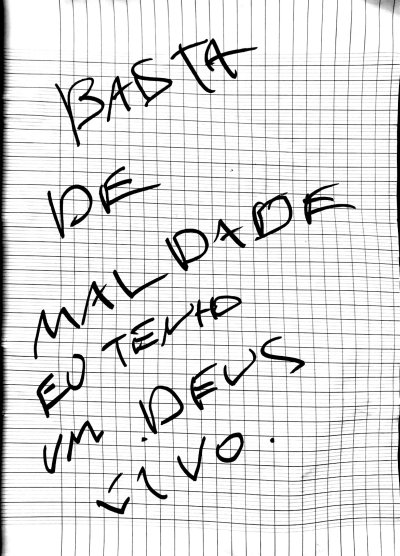 BASTA
DE
MALDADE
EU TENHO
UM DEUS
VIVO.